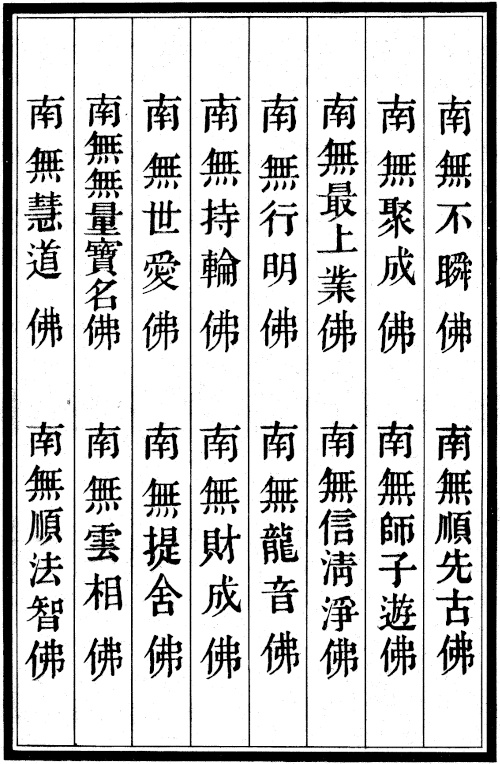 南無不瞬佛　南無順先古佛
南無聚成佛　南無師子遊佛
南無最上業佛　南無信淸淨佛
南無行明佛　南無龍音佛
南無持輪佛　南無財成佛
南無世愛佛　南無提舍佛
南無無量寶名佛　南無雲相佛
南無慧道佛　南無順法智佛